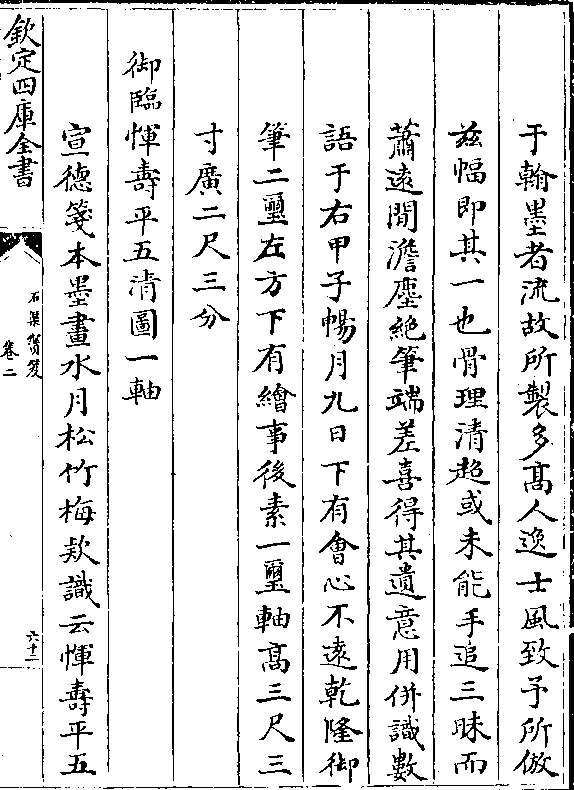 于翰墨者流故所製多髙人逸士風致予所倣
兹幅即其一也骨理清超或未能手追三昧而
蕭遠閒澹塵絶筆端差喜得其遺意用併識數
語于右甲子暢月九日下有㑹心不逺乾隆御
筆二璽左方下有繪事後素一璽軸髙三尺三
寸廣二尺三分
御臨惲壽平五清圖一軸
宣德箋本墨畫水月松竹梅欵識云惲壽平五
欽定四庫全書
石渠寳笈
卷二
六十二